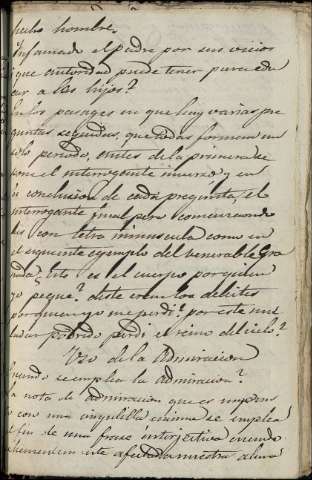 hecho hombre.
Infamado el padre por sus vicios
¿que autoridad puede tener para edu
car a los hijos?
En los pasages en que hay varias pre
guntas seguidas, que todas forman un
solo periodo, antes de la primera se
pone el interrogante inverso, y en
la conclusion de cada pregunta, el
interrogante final pero comenzando
las con letra minuscula como en
el siguiente ejemplo del venerable Gra
nada ¿Este es el cuerpo por quien
yo peque? ¿deste eran los deleites
por quien yo me perdi? por este mu
ladar podrido perdi el reino del cielo?
Uso de la Admiracion
Cuando se emplea la admiracion?
La nota de admiracion que es un pun
to con una encima se emplea
de una frase interjectiva cuando
este afectada nuestra alma